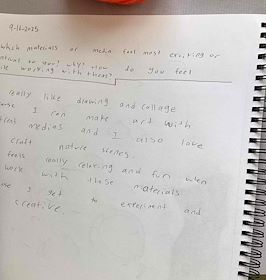 9-16-2025
which materials or media feel most exciting or
to you? why? How do you feel
working with them?
really like drawing and collage
I can make art with
media and I also love
craft nature scenes.
feels really relaxing and fun when
work with these materials
I get to experiment and
creative